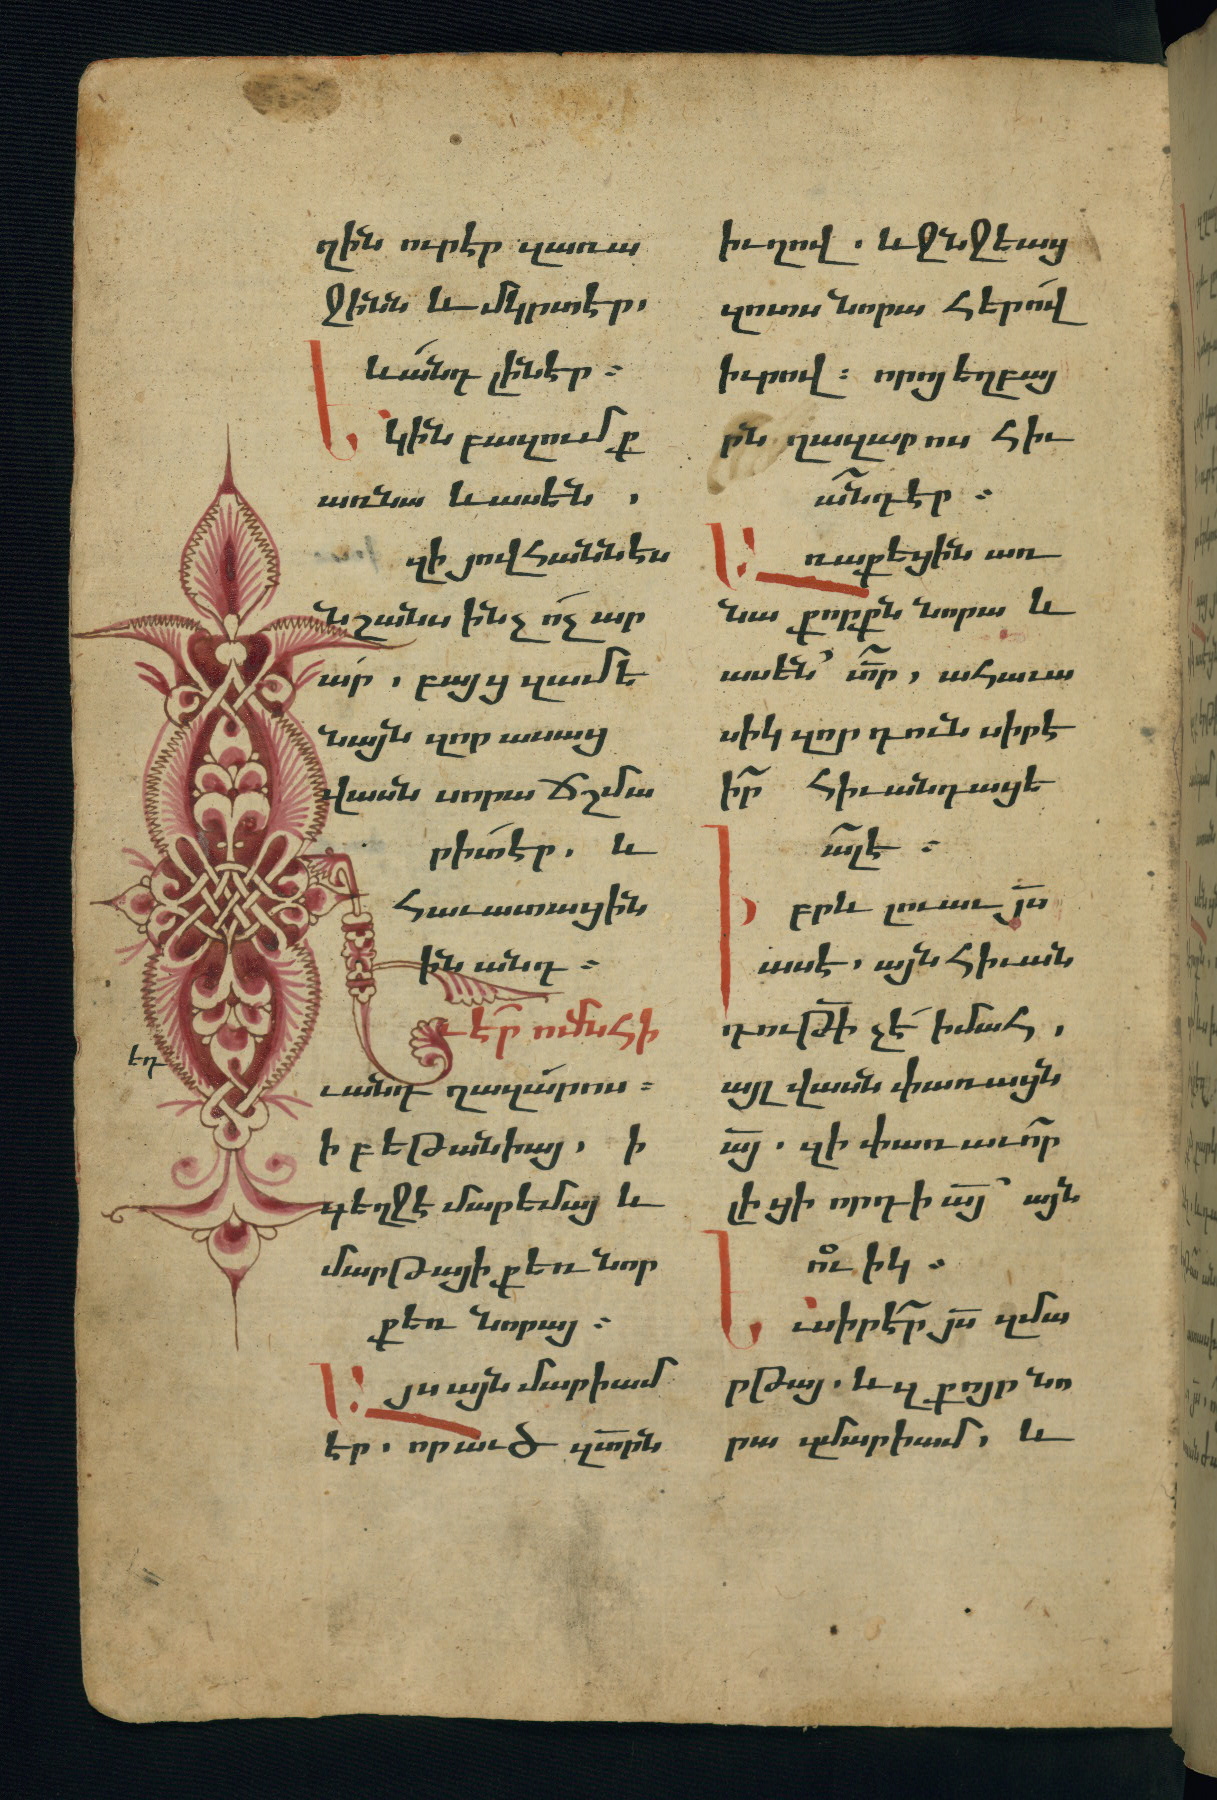 ղին ուր էր յառա
ջինն և մկրտէր.
և անդ լինէր ։
Եկին բազումք
առ նա և ասեն ,
զի յովհաննէս
նշանս ինչ ոչ ար
ար , բայց զամե
նայն զոր ասաց
վասն սորա ճշմա
րիտ էր , և
հաւատացին
ին անդ ։
Եւ էր ոմն հի
եղ
ւանդ ղազարոս ։
ի բեթանիայ , ի
գեղջէ մարեմայ և
մարթայի քեռ նոր
քեռ նորայ ։
Այս այն մարիամ
էր , որ աւծ զտրն
իւղով . և ջնջեաց
զոտս նորա հերով
իւրով ։ որոյ եղբայ
րն ղազարոս հիւ
անդ էր ։
Առաքեցին առ
նա քորքն նորա և
ասեն՝ տր , ահաւա
սիկ զոր դուն սիրէ
իր հիւանդացե
ալ է ։
Իբրև լուաւ յս
ասէ , այն հիւան
դութի չէ ի մահ ,
այլ վասն փառացն
այ . զի փառաւոր
լիցի որդի այ՝ այն
ու իկ ։
Եւ սիրէր յս զմա
րթայ . և զքոյր նո
րա զմարիամ , և